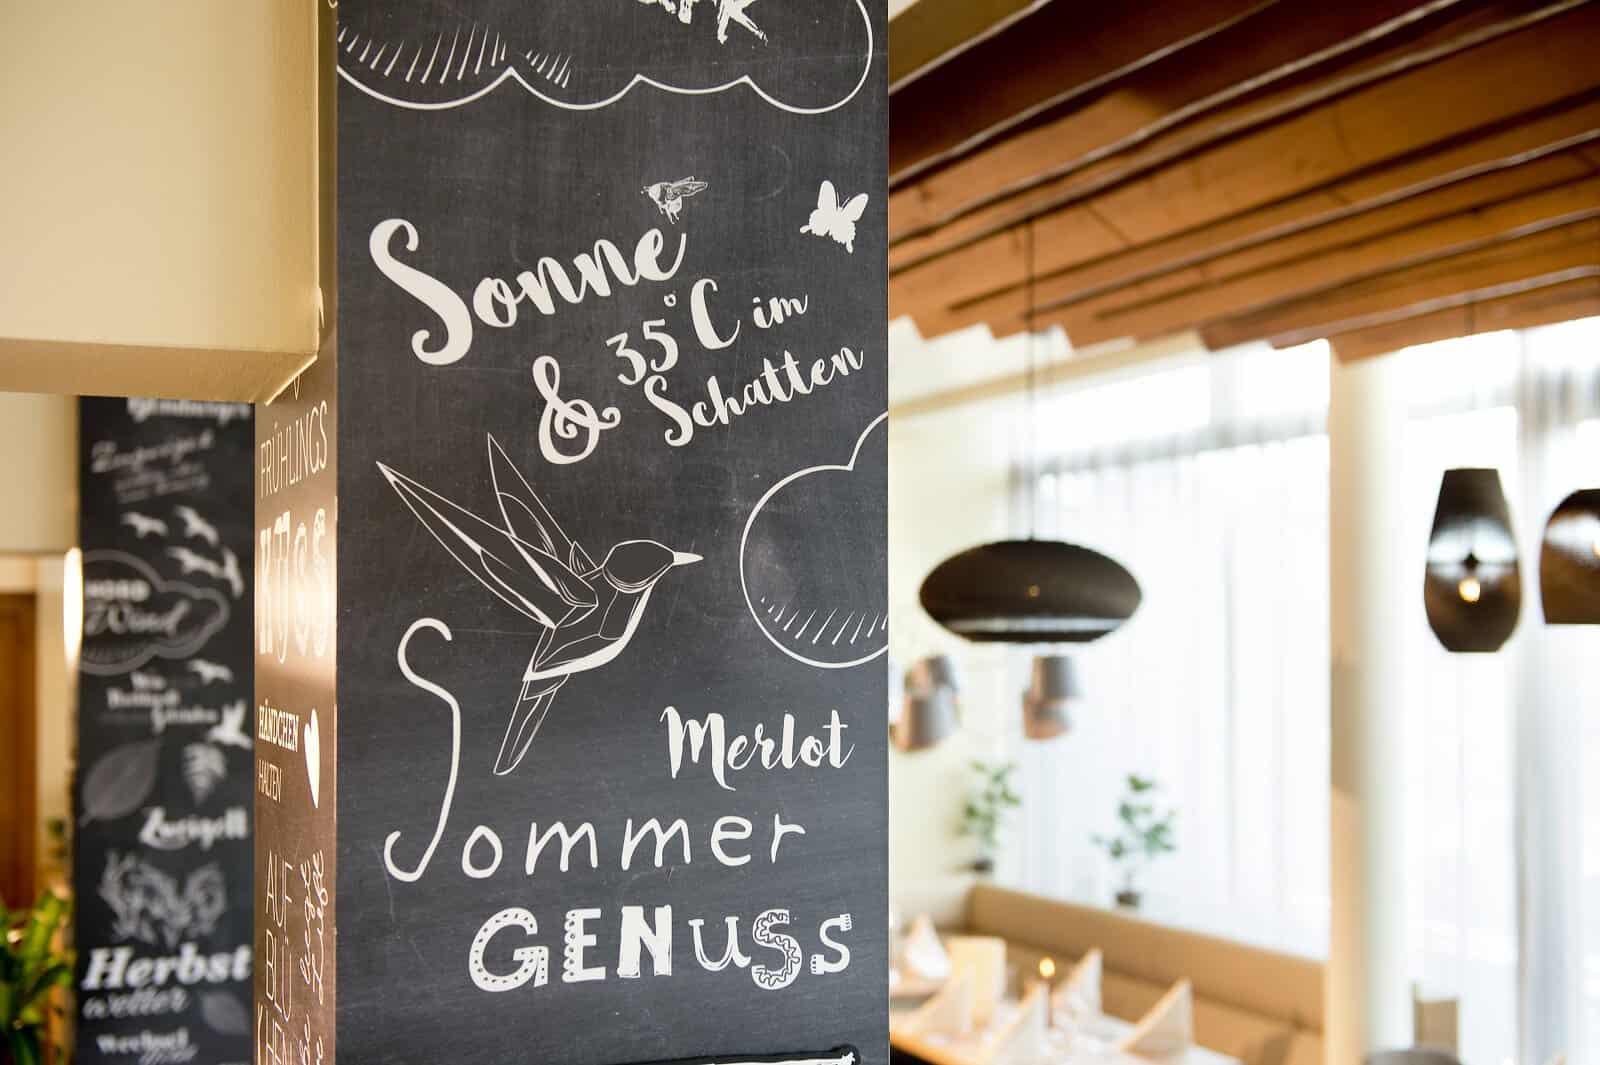 Sonne
& 35°C im
Schatten
Merlot
Sommer
GENUSS
FRÜHLINGS
KUSS
HÄNDCHEN
HALTEN
AUF
BLÜ
NORD
Wind
Zweigelt
Herbst
wetter
Wechsel